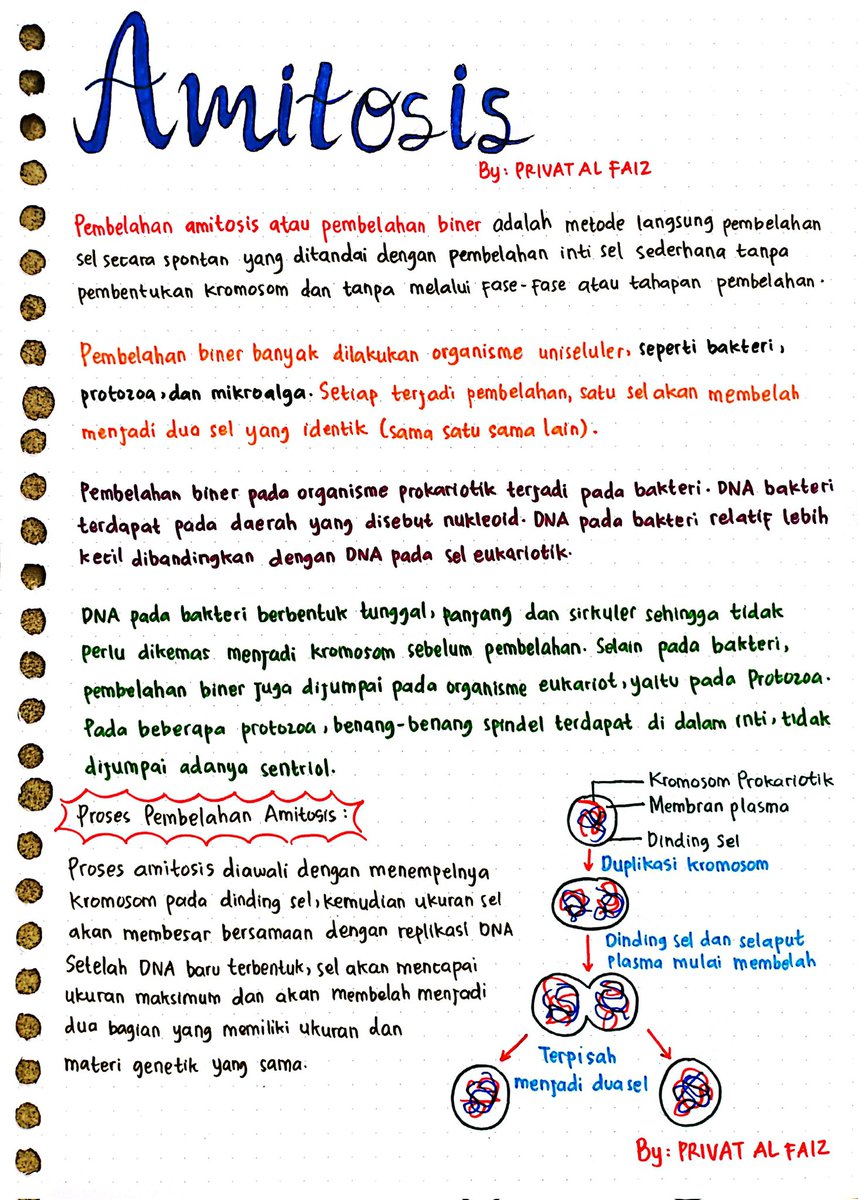 Amitosis
By: PRIVAT AL FAIZ
Pembelahan amitosis atau pembelahan biner adalah metode langsung pembelahan
sel secara spontan yang ditandai dengan pembelahan inti sel sederhana tanpa
pembentukan kromosom dan tanpa melalui fase-fase atau tahapan pembelahan.
Pembelahan biner banyak dilakukan organisme uniseluler, seperti bakteri,
protozoa, dan mikroalga. Setiap terjadi pembelahan, satu sel akan membelah
menjadi dua sel yang identik (sama satu sama lain).
Pembelahan biner pada organisme prokariotik terjadi pada bakteri. DNA bakteri
terdapat pada daerah yang disebut nukleoid. DNA pada bakteri relatif lebih
kecil dibandingkan dengan DNA pada sel eukariotik.
DNA pada bakteri berbentuk tunggal, panjang dan sirkuler sehingga tidak
perlu dikemas menjadi kromosom sebelum pembelahan. Selain pada bakteri,
pembelahan biner juga dijumpai pada organisme eukariot, yaitu pada Protozoa.
Pada beberapa protozoa, benang-benang spindel terdapat di dalam inti, tidak
dijumpai adanya sentriol.
Proses Pembelahan Amitosis:
Proses amitosis diawali dengan menempelnya
kromosom pada dinding sel, kemudian ukuran sel
akan membesar bersamaan dengan replikasi DNA
Setelah DNA baru terbentuk, sel akan mencapai
ukuran maksimum dan akan membelah menjadi
dua bagian yang memiliki ukuran dan
materi genetik yang sama.
Kromosom Prokariotik
Membran plasma
Dinding Sel
Duplikasi kromosom
Dinding sel dan selaput
plasma mulai membelah
Terpisah
menjadi dua sel
By: PRIVAT AL FAIZ